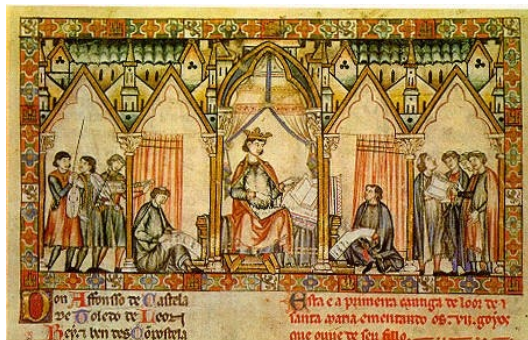 Don Affonsso de Castela
de Toledo de Leon
Rey ben des Conpostela
Esta e a primeira cantiga de loor de
santa maria ementando os .vii. goyos
que ouve de seu fillo